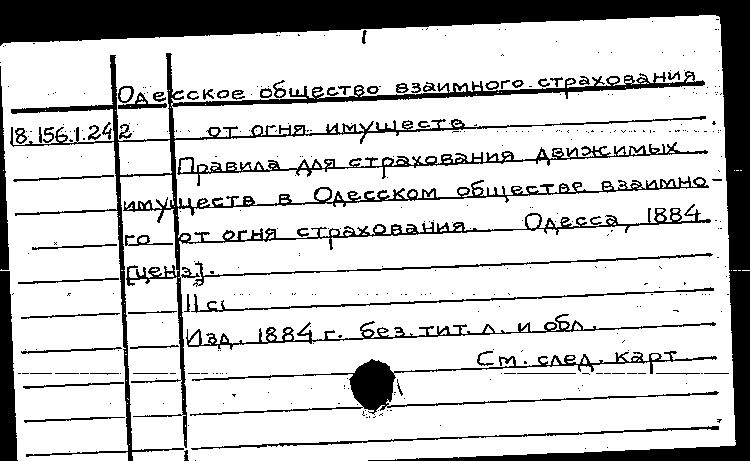 Одесское общество взаимного страхования
18.156.1.242 от огня имуществ.
Правила для страхования движимых
имуществ в Одесском обществе взаимно-
го от огня страхования. Одесса, 1884
[ценз.].
11 с.
Изд. 1884 г. без. тит. л. и обл.
См. след. карт